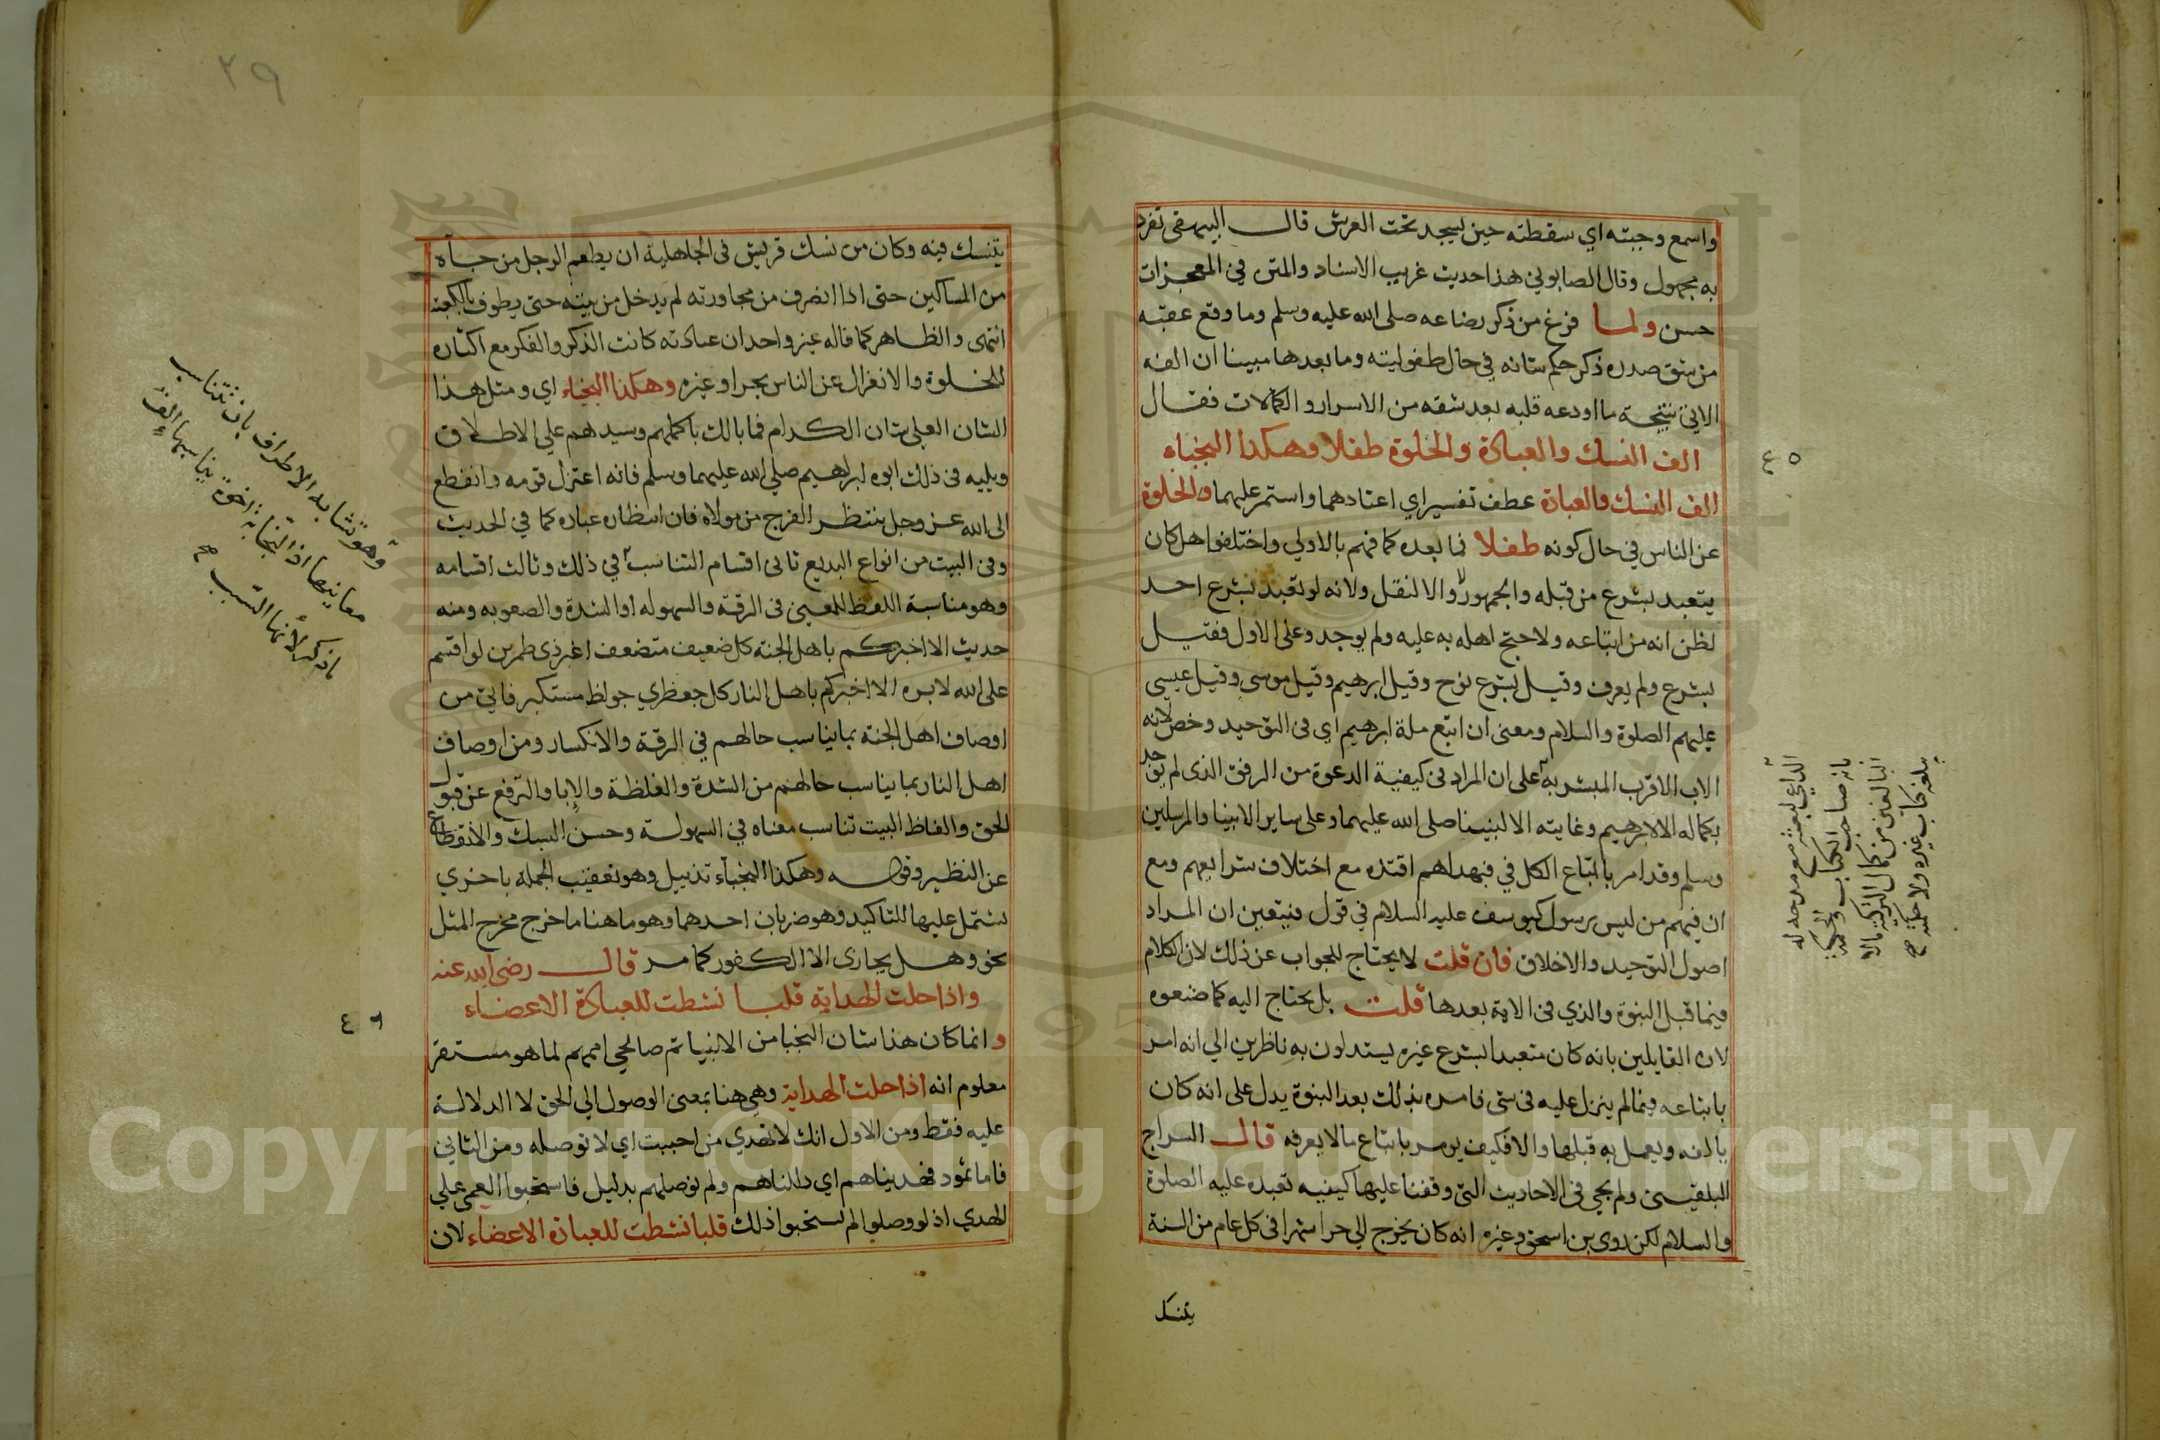 واسمع وجبته اي سقطته حين يسجد تحت العرش قال البيهقى تفرد
به مجهول وقال الصابوني هذا حديث غريب الاسناد والمتن في المعجزات
حسن ولما فرغ من ذكر رضاعه صلى الله عليه وسلم وما وقع عقبه
من شق صدره ذكر حكم شانه في حال طفوليته وما بعدها مبينا ان الفه
الاتي نتيجة ما اودعه قلبه بعد شقه من الاسرار والكمالات فقال
الف النسك والعبادة والخلوة طفلا وهكذا النجباء
٤٥
الف النسك والعبادة عطف تفسير اي اعتادهما واستمر عليهما والخلوة
عن الناس في حال كونه طفلا فما بعده كما فهم بالاولي واختلفوا هل كان
يتعبد بشرع من قبله والجمهور لا والا لنقل ولانه لو تعبد بشرع احد
لظن انه من اتباعه ولاحتج اهله به عليه ولم يوجد وعلى الاول فقيل
بشرع ولم يعرف وقيل بشرع نوح وقيل ابرهيم وقيل موسى وقيل عيسى
عليهم الصلوة والسلام ومعنى ان اتبع ملة ابرهيم اي في التوحيد وخص لانه
الاب الاقرب المبشر به على ان المراد في كيفية الدعوة من الرفق الذى لم يوجد
بكماله الا لابرهيم وغايته الا لنبينا صلى الله عليهما وعلى ساير الانبيا والمرسلين
وسلم وقد امر باتباع الكل في فبهداهم اقتده مع اختلاف شرايعهم ومع
ان فيهم من ليس برسول كيوسف عليه السلام في قول فيتعين ان المراد
اصول التوحيد والاخلاق فان قلت لا يحتاج للجواب عن ذلك لان الكلام
فيما قبل النبوة والذي في الاية بعدها قلت بل يحتاج اليه كما صنعوه
لان القايلين بانه كان متعبدا بشرع غيره يستدلون به ناظرين الي انه امر
باتباعه فيما لم ينزل عليه فى شى فامره بذلك بعد النبوة يدل على انه كان
يالفه ويعمل به قبلها والا فكيف يومر باتباع ما لا يعرفه قال السراج
البلقيني ولم يجي في الاحاديث التي وقفنا عليها كيفيه تعبده عليه الصلوة
والسلام لكن روى بن اسحق وغيره انه كان يخرج الي حرا شهرا في كل عام من السنة
يتنسك
٢٩
يتنسك فيه وكان من نسك قريش فى الجاهلية ان يطعم الرجل من جآه
من المساكين حتى اذا انصرف من مجاورته لم يدخل من بيته حتى يطوف بالكعبة
انتهى والظاهر كما قاله غير واحد ان عبادته كانت الذكر والفكر مع اكثاره
للخلوة والانعزال عن الناس بحرا وغيره وهكذا النجباء اي ومثل هذا
الشان العلي شان الكرام فما بالك باكملهم وسيدهم علي الاطلاق
ويليه فى ذلك ابوه ابرهيم صلي الله عليهما وسلم فانه اعتزل قومه وانقطع
الى الله عز وجل ينتظر الفرج من مولاه فان انتظاره عباده كما في الحديث
وفي البيت من انواع البديع ثانى اقسام التناسب في ذلك وثالث اقسامه
وهو مناسبة اللفظ للمعنى فى الرقة والسهوله او الشدة والصعوبه ومنه
حديث الا اخبركم باهل الجنة كل ضعيف متضعف اغبر ذى طمرين لو اقسم
على الله لابره الا اخبركم باهل النار كل جعظري جواظ مستكبر فاتى من
اوصاف اهل الجنة بما يناسب حالهم في الرقة والانكسار ومن اوصاف
اهل النار بما يناسب حالهم من الشدة والغلظة والابا والترفع عن قبول
الحق والفاظ البيت تناسب معناه في السهولة وحسن السبك والانقطاع
عن النظير وقوله وهكذا النجبآء تذييل وهو تعقيب الجملة باخري
تشتمل عليها للتاكيد وهو ضربان احدهما وهو ما هنا ما خرج مخرج المثل
نحو وهل يجازى الا الكفور كما مر قال رضى الله عنه
واذا حلت الهداية قلبا نشطت للعبادة الاعضاء
٤٦
وانما كان هذا شان النجبا من الانبيا ثم صالحي اممهم لما هو مستقر
معلوم انه اذا حلت الهداية وهي هنا بمعنى الوصول الي الحق لا الدلالة
عليه فقط ومن الاول انك لا تهدي من احببت اي لا توصله ومن الثاني
فاما ثمود فهديناهم اي دللناهم ولم نوصلهم بدليل فاستحبوا العمى علي
الهدي اذ لو وصلوا لم يستحبوا ذلك قلبا نشطت للعبادة الاعضاء لان
وهو تشابه الاطراف بان تتناسب
Copyright © King Saud University
1957